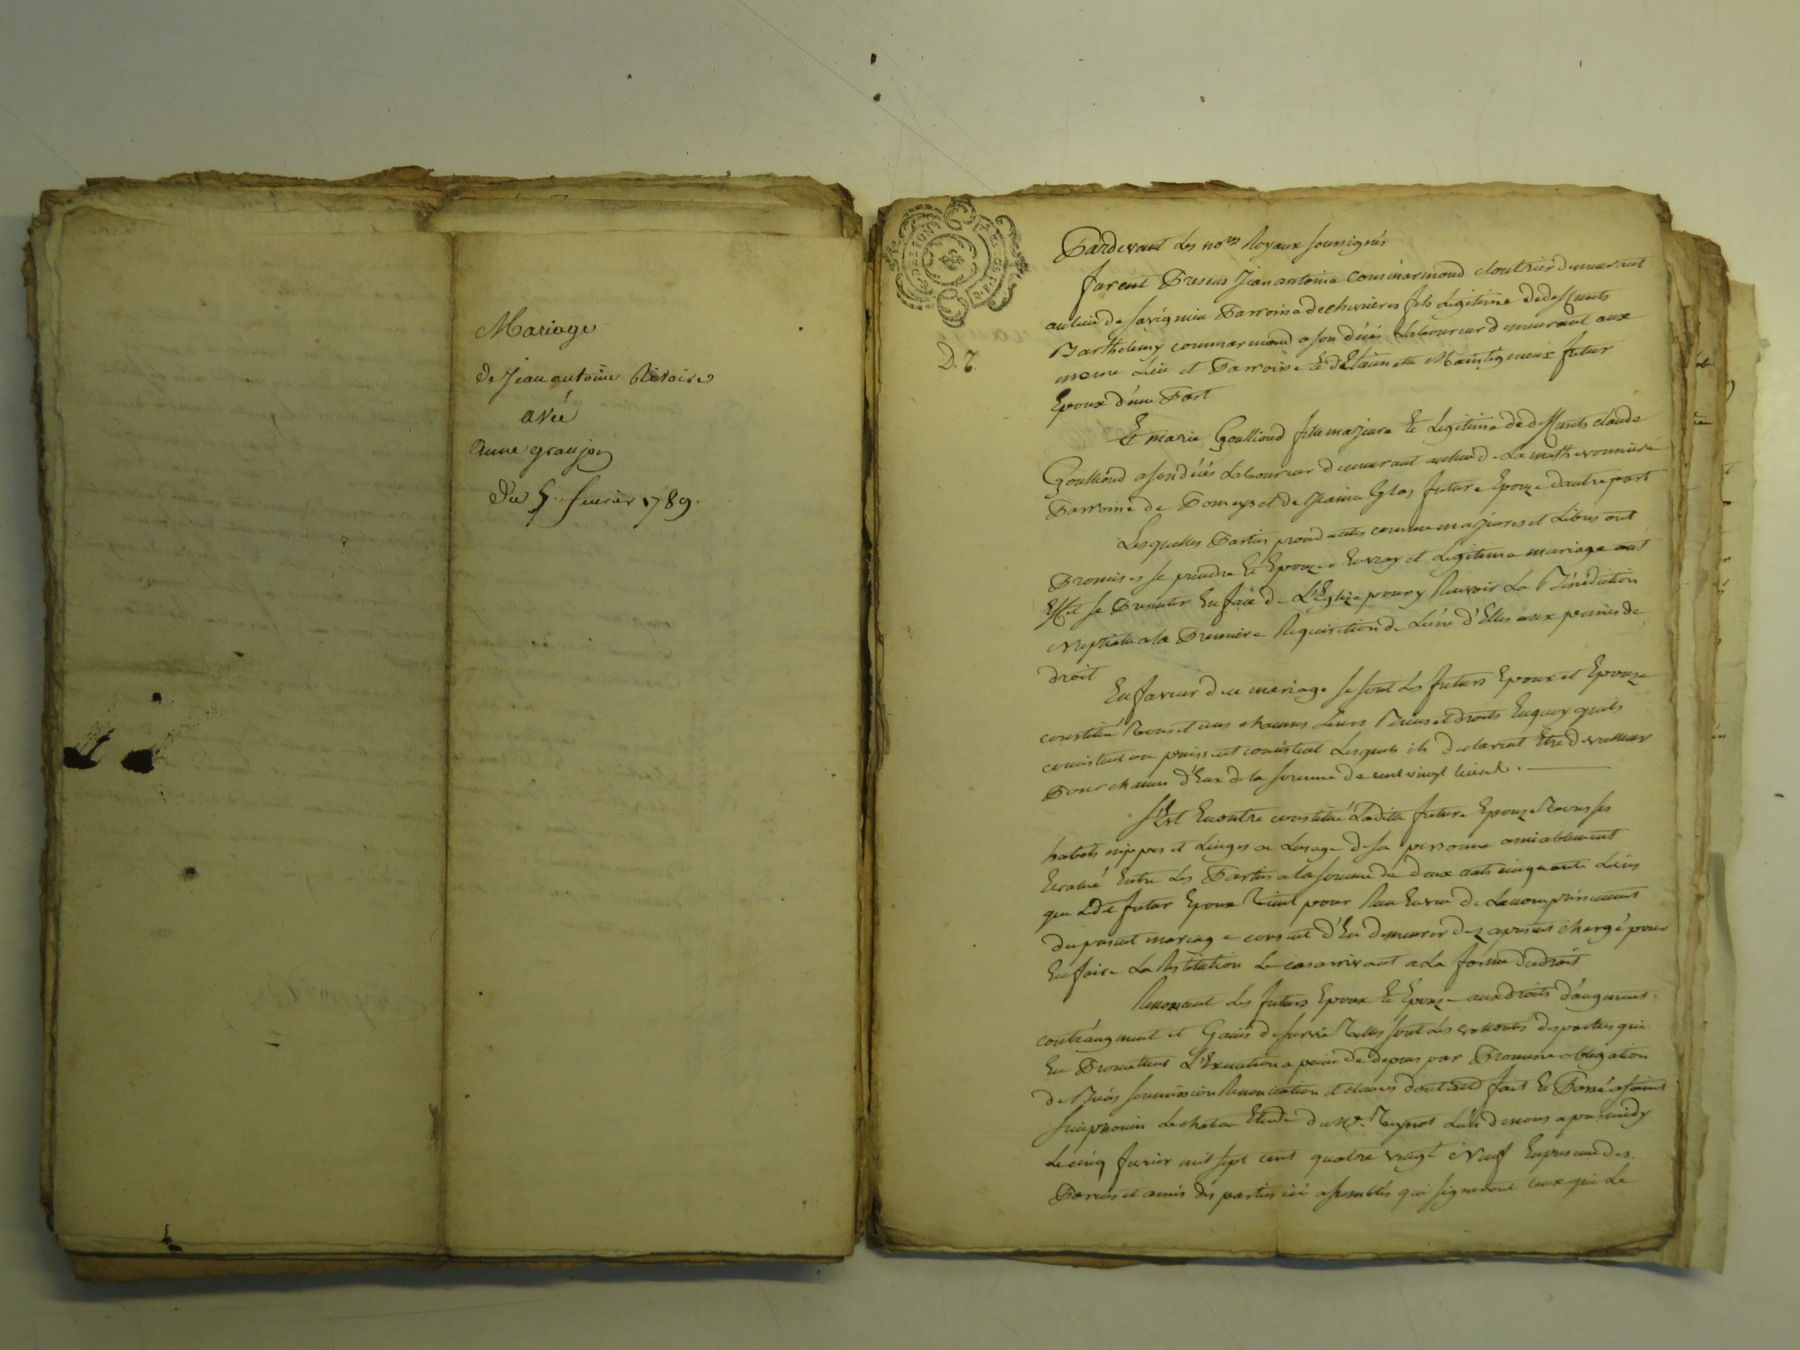 Mariage
de Jean antoine Rivoire
avec
anne granjon
du 5. fevrier 1789.
D. 7.
Pardevant Les no.res Royaux soussignés
furent Presens Jean antoine commarmond cloutrier demeurant
au lieu de savignieu Parroisse de chevrieres fils Legitime de deffunts
Barthelemy commarmond a son décés Laboureur demeurant aux
meme Lieu et Parroisse Et d'Etiennette Maintigneux futur
Epoux d'une Part
Et marie Goullioud fille majeure Et Legitime de deffunts claude
Goullioud a son décés Laboureur demeurant au lieu de La
Parroisse de Pomeys et de Jeanne futur Epouze d'autre part
Lesquelles Parties procedantes comme majeures et Libres ont
Promises se prendre Et Epouzer En vray et Legitime mariage
Effet se Presenter En face de L'Eglize pour y Recevoir La Bénédiction
Nuptiale a la Premiere Requisition de L'une d'Elles aux peines de
droit
En faveur du ce mariage se sont Les futurs Epoux et Epouze
constitué Tous et uns chacuns Leurs Biens et droits En quoy quils
consistent ou puissent consister Lesquels ils declarent Etre de valleur
Pour chacun d'Eux de la somme de cent vingt livres.
S'Est En outre constitué Laditte future Epouze Tous ses
habits nippes et Linges a Lusage de sa personne amiablement
Evalué Entre Les Parties a la somme de deux cents cinquante Livres
que Led.t futur Epoux Tient pour Reçu En vue de L'accomplissement
du present mariage consent d'En demeurer dez apresent chargé pour
En faire La Restitution Le cas arrivant a La forme du droit
Renoncent Les futurs Epoux Et Epouze aux droits d'augment
contr'augment et Gains de survie Telles sont Les volontés des parties qui
En Promettent L'Execution a peine de depens par Promesse obligation
de Biens soumission Renonciation et clauses dont acte fait Et Passé a saint
simphorien Le chateau Etude du M.e L'un de nous apres midy
Le cinq fevrier mil sept cent quatre vingt Neuf En presence des
Parens et amis des parties ici assemblés qui signeront ceux qui Le